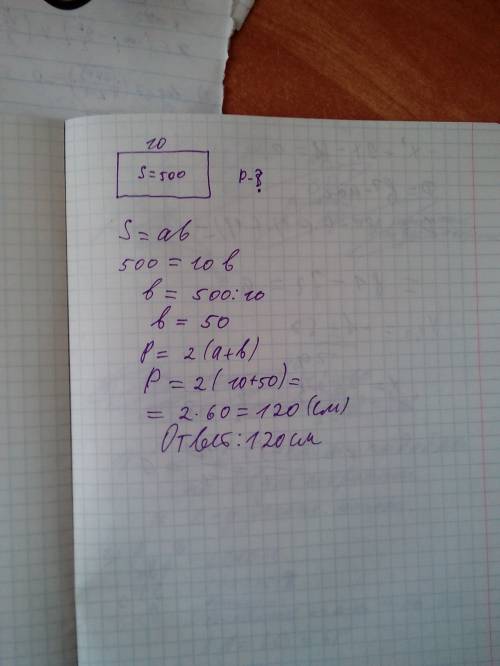 10
S=500 P-?
S=ab
500=10b
b=500:10
b=50
P=2(a+b)
P=2(10+50)=
=2·60=120(см)
Ответ:120см